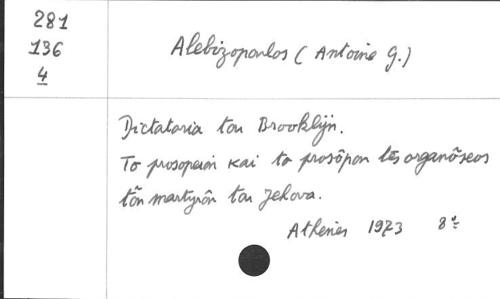 281
136
4
Alebizopoulos (Antoine G.)
Dictatoria tou Brooklijn.
To prosopeion kai to prosôpon tês organôseos
tôn martyrôn tou Jehova.
Athènes 1973 8°